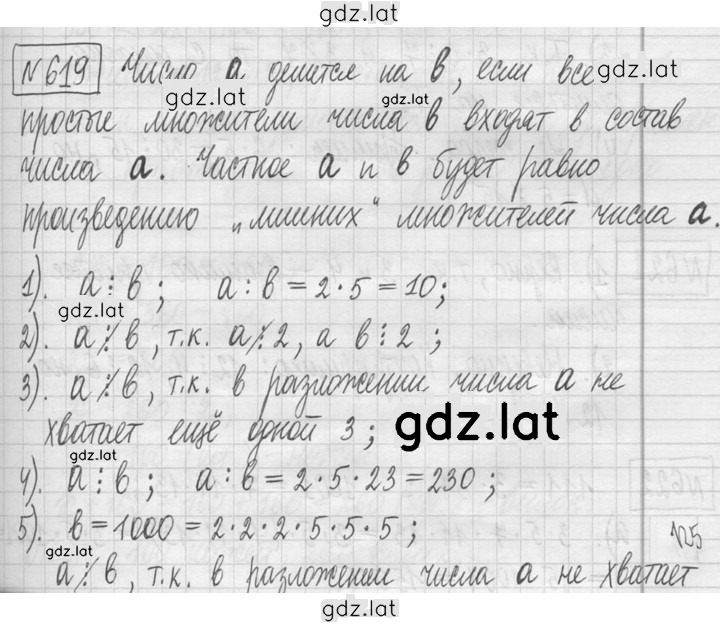 gdz.lat
№619 Число а делится на в, если все gdz.lat
gdz.lat gdz.lat
простые множители числа в входят в состав
числа а. Частное а и в будет равно
произведению „лишних“ множителей числа а.
1). а ⋮ в ; а : в = 2 · 5 = 10 ;
gdz.lat
2). а ⋮̸ в , т.к. а ⋮̸ 2 , а в ⋮ 2 ;
3). а ⋮̸ в , т.к. в разложении числа а не
хватает ещё одной 3 ; gdz.lat
gdz.lat
4). а ⋮ в ; а : в = 2 · 5 · 23 = 230 ;
5). в = 1000 = 2 · 2 · 2 · 5 · 5 · 5 ; 125
gdz.lat
а ⋮̸ в , т.к. в разложении числа а не хватает
gdz.lat